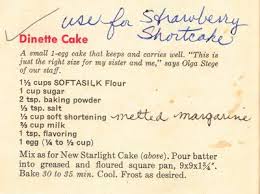 use for Strawberry
Shortcake
Dinette Cake
A small 1-egg cake that keeps and carries well. "This is
just the right size for my sister and me," says Olga Stege
of our staff.
1½ cups SOFTASILK Flour
1 cup sugar
2 tsp. baking powder
½ tsp. salt
⅓ cup soft shortening - melted margarine
⅔ cup milk
1 tsp. flavoring
1 egg (¼ to ⅓ cup)
Mix as for New Starlight Cake (above). Pour batter
into greased and floured square pan, 9x9x1¾".
Bake 30 to 35 min. Cool. Frost as desired.